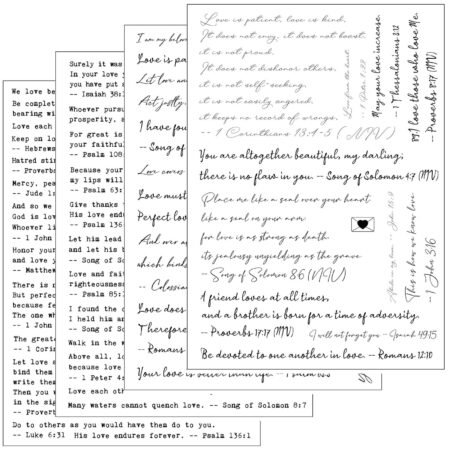 Love is patient, love is kind.
It does not envy, it does not boast,
it is not proud.
It does not dishonor others,
it is not self-seeking,
it is not easily angered,
it keeps no record of wrongs.
-- 1 Corinthians 13:4-5 (NIV)
You are altogether beautiful, my darling;
there is no flaw in you. -- Song of Solomon 4:7 (NIV)
Place me like a seal over your heart,
like a seal on your arm;
for love is as strong as death,
its jealousy unyielding as the grave.
-- Song of Solomon 8:6 (NIV)
A friend loves at all times,
and a brother is born for a time of adversity.
-- Proverbs 17:17 (NIV)
I will not forget you -- Isaiah 49:15
Be devoted to one another in love. -- Romans 12:10
May your love increase.
-- 1 Thessalonians 3:12
I love those who love Me.
-- Proverbs 8:17 (NIV)
This is how we know love
-- 1 John 3:16
I am my belov
Love is pa
Let love an
Act justly,
I have fou
-- Song of
Love covers
Love must
Perfect lov
And over a
which binds
-- Colossian
Love does
Therefore
-- Romans
Your love is better than life. -- Psalm 63:3
Surely it was
In your love y
you have put a
-- Isaiah 38:
Whoever pursu
prosperity, an
For great is
your faithful
-- Psalm 108:
Because your
my lips will
-- Psalm 63:
Give thanks
His love endu
-- Psalm 136
Let him lead
and let his b
-- Song of So
Love and fait
righteousness
-- Psalm 85:
I found the o
I held him an
-- Song of So
Walk in the w
Above all, lo
because love
-- 1 Peter 4:
Love each oth
Many waters cannot quench love. -- Song of Solomon 8:7
We love be
Be complet
bearing wi
Love each
Keep on lo
-- Hebrews
Hatred sti
-- Proverb
Mercy, pea
-- Jude 1:
And so we
God is lov
Whoever li
-- 1 John
Honor your
and love y
-- Matthew
There is n
But perfec
because fe
The one wh
-- 1 John
The greate
-- 1 Corin
Let love a
bind them
write them
Then you w
in the sig
-- Proverb
Do to others as you would have them do to you.
-- Luke 6:31 His love endures forever. -- Psalm 136:1